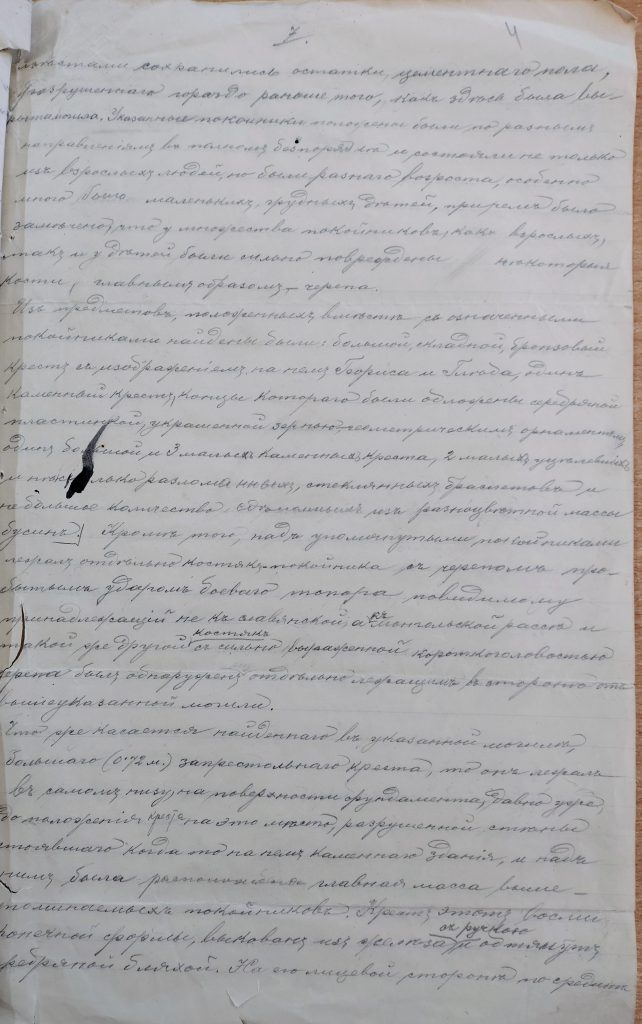 7.
4
мѣстами сохранились остатки цементнаго пола,
разрушеннаго гораздо раньше того, какъ здѣсь была вы-
рыта могила. Указанные покойники положены были по разнымъ
направленіямъ въ полномъ безпорядкѣ и состояли не только
изъ взрослыхъ людей, но были разнаго возроста, особенно
много было маленькихъ, грудныхъ дѣтей, при чемъ было
замѣчено, что у множества покойниковъ, какъ взрослыхъ,
такъ и у дѣтей, были сильно повреждены нѣкоторыя
кости, главнымъ образомъ – черепа.
Изъ предметовъ, положенныхъ вмѣстѣ съ означенными
покойниками найдены были: большой, складной, бронзовый
крестъ съ изображеніемъ на немъ Бориса и Глѣба, одинъ
каменный крестъ, концы котораго были обложены серебряной
пластинкой, украшенной зернью, геометрическимъ орнаментомъ,
одинъ большой и 3 малыхъ каменныхъ креста, 2 малыхъ уцѣлѣвшихъ
и нѣсколько разломанныхъ, стеклянныхъ браслетовъ и
не большое количество сдѣланныхъ изъ разноцвѣтной массы
бусинъ. Кромѣ того, надъ упомянутыми покойниками
лежалъ отдѣльно костякъ покойника съ черепомъ про-
битымъ ударомъ боеваго топора, повидимому
принадлежащій не къ славянской, а къ монгольской рассѣ и
такой же другой костякъ съ сильно выраженной короткоголовостью
черепа былъ обнаруженъ отдѣльно лежащимъ въ сторонѣ отъ
вышеуказанной могилы.
Что же касается найденнаго въ указанной могилѣ,
большаго (0.72 м.) запрестольнаго креста, то онъ лежалъ
въ самомъ низу, на поверхности фундамента, давно уже,
до положенія креста на это мѣсто, разрушенной стѣны
стоявшаго когда то на немъ каменнаго зданія, и надъ
нимъ была расположена главная масса выше-
упоминаемыхъ покойниковъ. Крестъ этотъ восьми
конечной формы, выкованъ изъ желѣза съ ручкою и обтянутъ
серебряной бляхой. На его лицевой сторонѣ по срединѣ